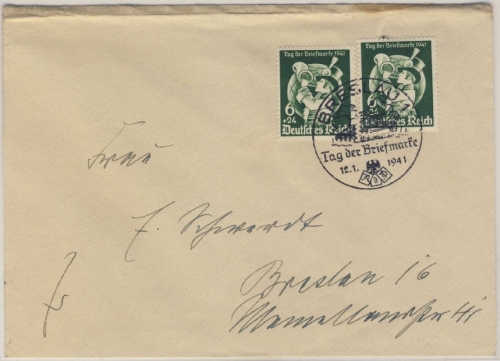 Tag der Briefmarke 1941
6
+24
Deutsches Reich
Tag der Briefmarke 1941
6
+24
Deutsches Reich
BRESLAU 1
Tag der Briefmarke
12.1. 1941
Frau
E. Schwerdt
Breslau 16